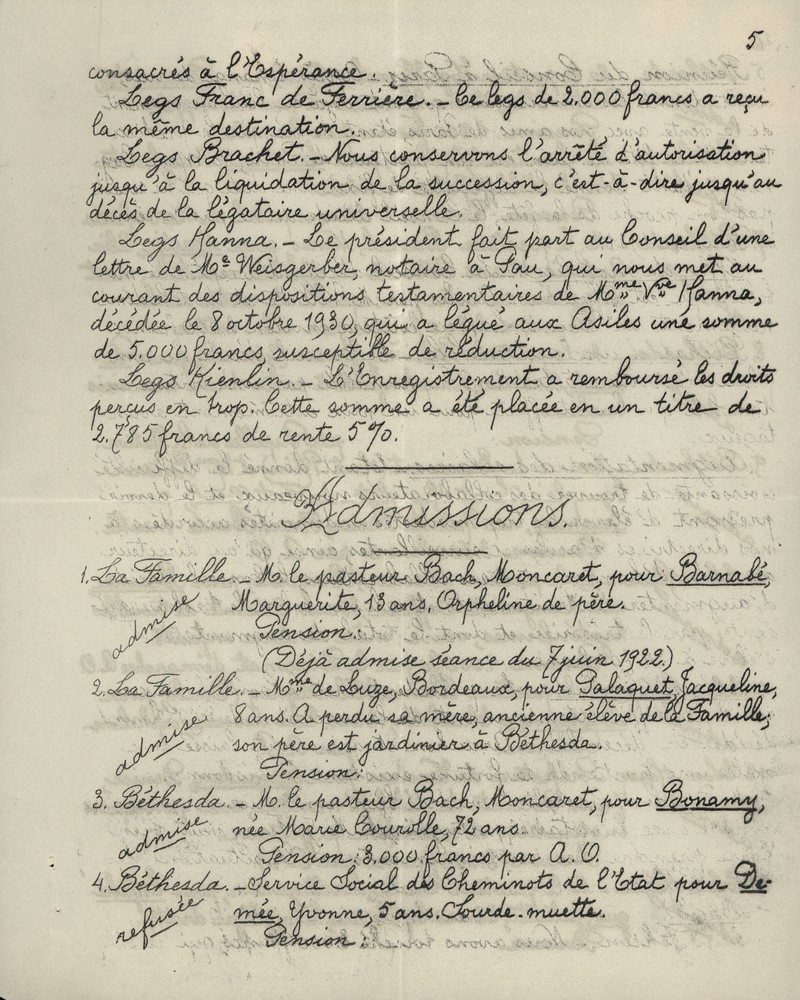 5
consacrés à l'Espérance.
Legs Franc de Ferrière. - Ce legs de 2.000 francs a reçu
la même destination.
Legs Brachet. - Nous conservons l'arrêté d'autorisation
jusqu'à la liquidation de la succession, c'est-à-dire jusqu'au
décès de la légataire universelle.
Legs Hanna. - Le président fait part au Conseil d'une
lettre de Me Weisgerber, notaire à Pau, qui nous met au
courant des dispositions testamentaires de Mme Vve Hanna,
décédée le 8 octobre 1930, qui a légué aux Asiles une somme
de 5.000 francs susceptible de réduction.
Legs Kienlin. - L'Enregistrement a remboursé les droits
perçus en trop. Cette somme a été placée en un titre de
2.785 francs de rente 5%.
Admissions.
1. La Famille. - M. le pasteur Bach, Moncaret, pour Barnabé,
Marguerite, 13 ans. Orpheline de père.
admise
Pension:
(Déjà admise séance du 7 juin 1922.)
2. La Famille. - Mme de Luze, Bordeaux, pour Palaquet, Jacqueline,
8 ans. A perdu sa mère, ancienne élève de la Famille;
admise
son père est jardinier à Béthesda.
Pension:
3. Béthesda. - M. le pasteur Bach, Moncaret, pour Bonamy,
née Marie Courolle, 72 ans.
admise
Pension: 3.000 francs par A. O.
4. Béthesda. - Service Social des Cheminots de l'Etat pour De-
mée, Yvonne, 5 ans. Sourde-muette.
refusée
Pension: